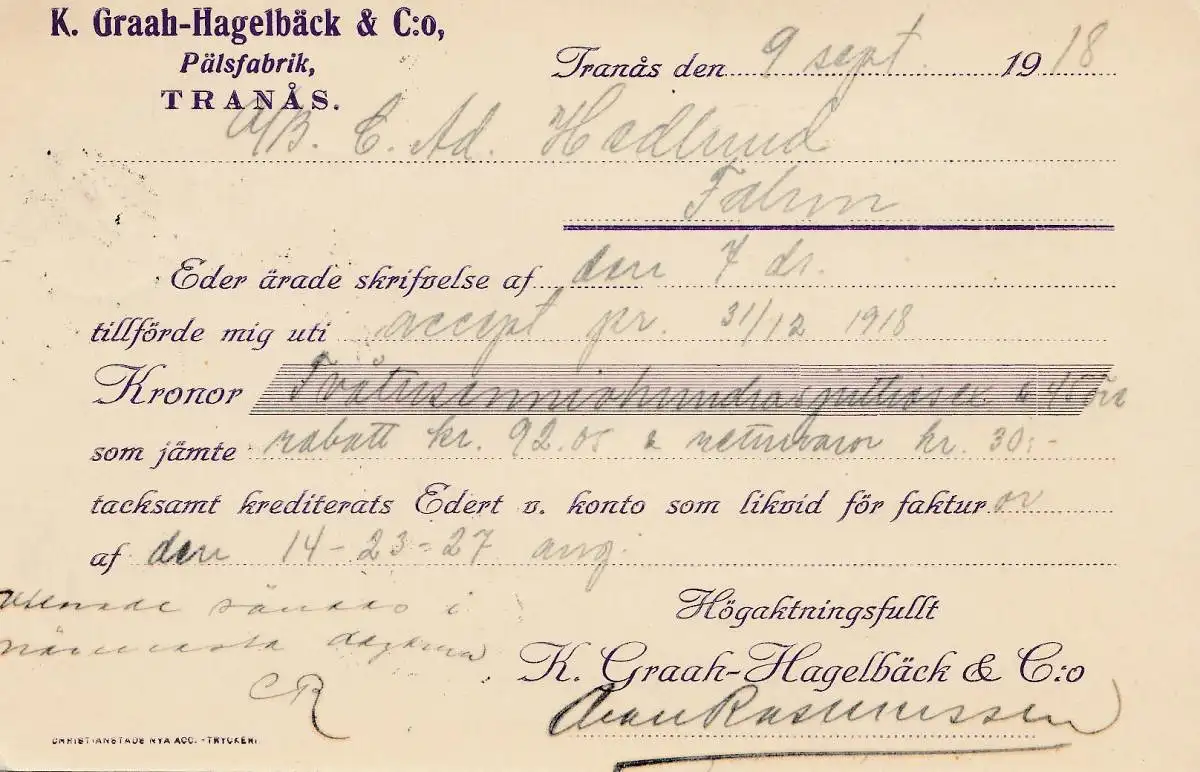 K. Graah-Hagelbäck & C:o,
Pälsfabrik,
TRANÅS.
Tranås den 9 sept. 1918
A/B. E. Ad. Hedlund
Falun
Eder ärade skrifvelse af den 7 ds.
tillförde mig uti accept pr. 31/12 1918
Kronor Tvåtusenniohundrasjuttiosex & 45 öre
som jämte rabatt kr. 92.05 & returvaror kr. 30:-
tacksamt krediterats Edert v. konto som likvid för fakturor
af den 14-23-27 aug.
sändas i
närmaste dagarna
CR
Högaktningsfullt
K. Graah-Hagelbäck & C:o
Rasmussen
CHRISTIANSTADS NYA ACC.-TRYCKERI